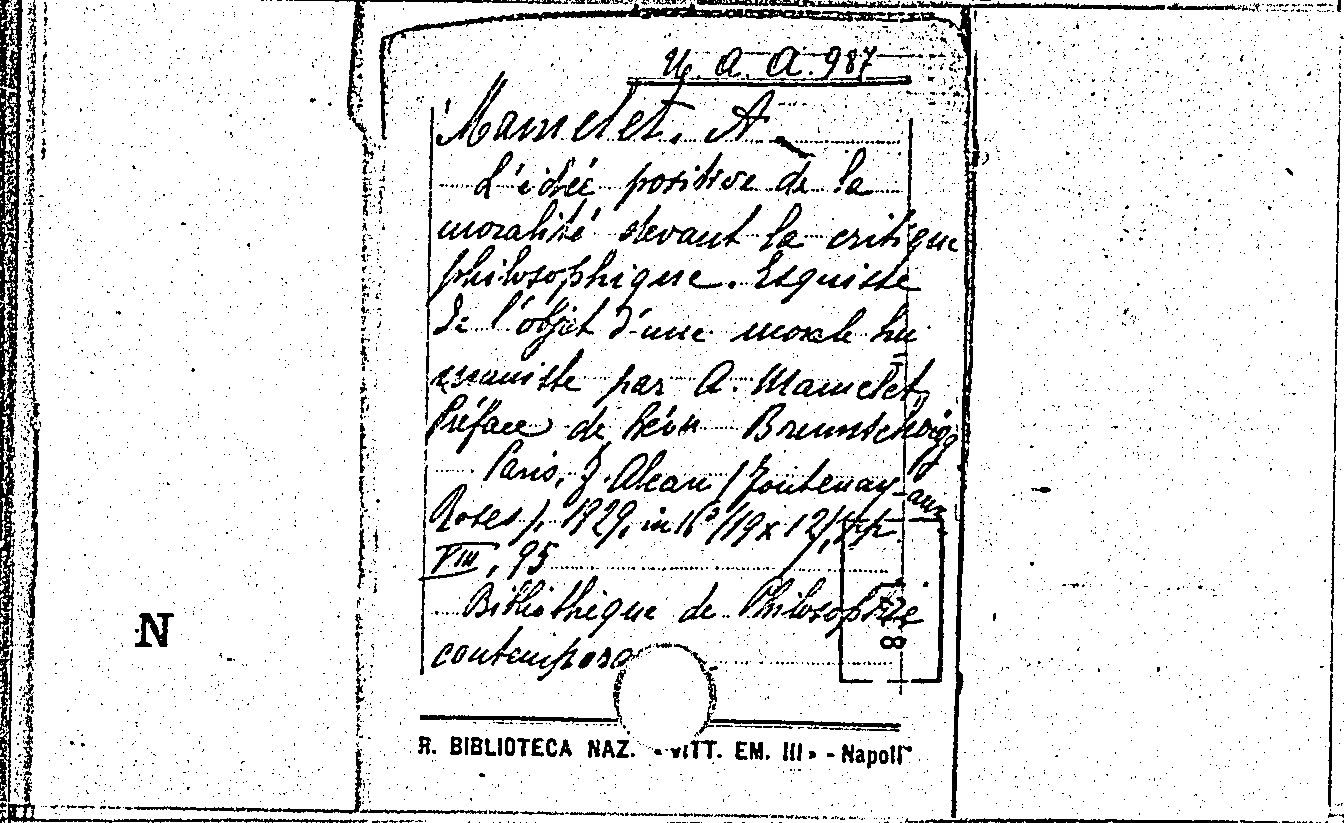 A. A. 987
Mamelet. A.
L'idée positive de la
moralité devant la critique
philosophique. Esquisse
de l'objet d'une morale hu
maniste par A. Mamelet,
Préface de Léon Brunschvigg
Paris, F. Alcan (Fontenay-aux
Roses), 1929, in 16° (19 x 12), pp.
VIII, 95
Bibliothèque de Philosophie
contempora
N
8
R. BIBLIOTECA NAZ. « VITT. EM. III » - Napoli